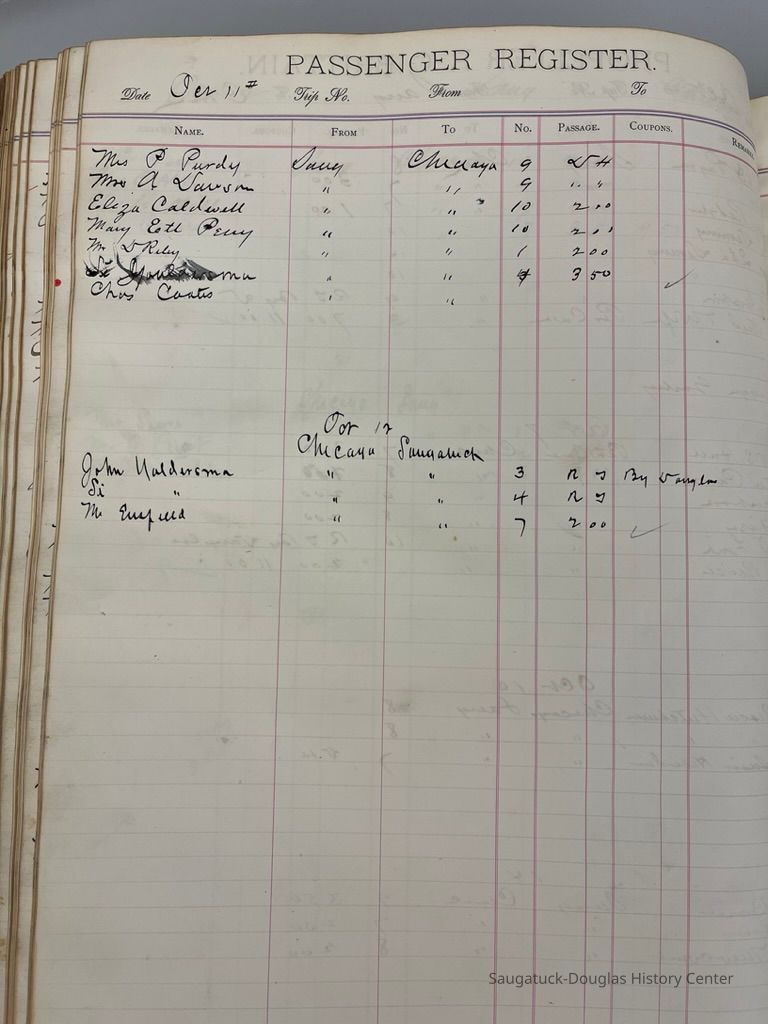 PASSENGER REGISTER.
Date Oct 11th Trip No. From To
NAME. FROM TO NO. PASSAGE. COUPONS. REMARKS
Mrs P Purdy Saug Chicago 9 D H
Mrs A Dawson " " 9 " "
Eliza Caldwell " " 10 2 00
Mary Esth Perry " " 10 2 00
Mr D Riley " " 1 2 00
" " 4 3 50 ✓
Chas Coates " "
Oct 12
Chicago Saugatuck
John Naldersma " " 3 R T By Douglas
Si " " " 4 R T
Mr Enfield " " 7 2 00 ✓
Saugatuck-Douglas History Center